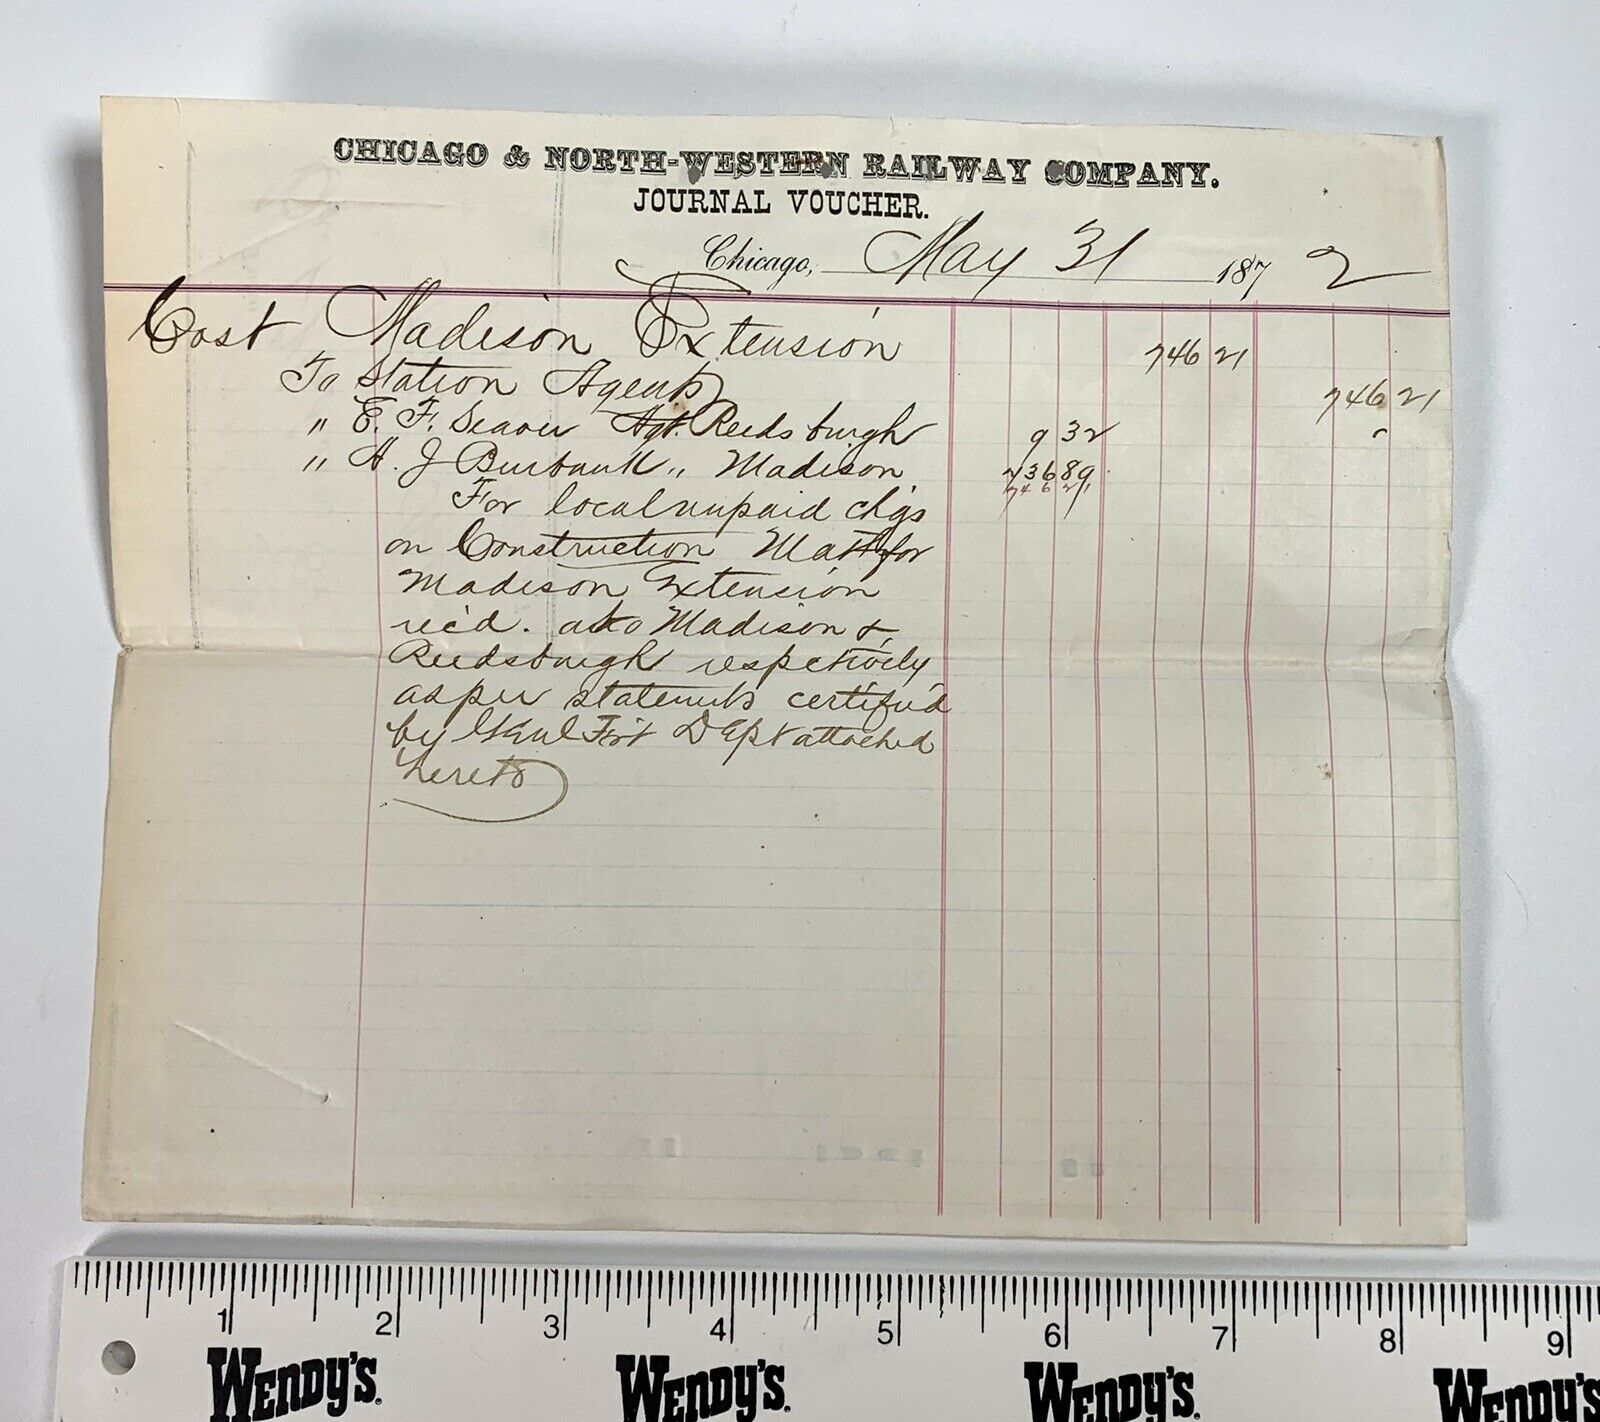 CHICAGO & NORTH-WESTERN RAILWAY COMPANY.
JOURNAL VOUCHER.
Chicago, May 31 1872
Cost Madison Extension 746 21
To Station Agents 746 21
" E. F. Seaver Agt. Reedsburgh 9 32
" A. J Burbank " Madison 736 89
746 21
For local unpaid chgs
on Construction Matl for
Madison Extension
rec'd. at Madison &
Reedsburgh respectively
as per statements certified
by Genl Frt Dept attached
hereto
1 2 3 4 5 6 7 8 9
WENDY'S. WENDY'S. WENDY'S. WENDY'S